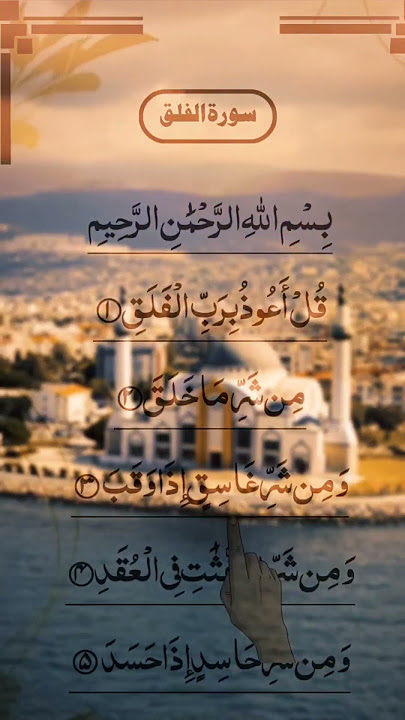 سورة الفلق
بِسْمِ اللهِ الرَّحْمٰنِ الرَّحِيمِ
قُلْ أَعُوذُ بِرَبِّ الْفَلَقِ ۝١
مِن شَرِّ مَا خَلَقَ ۝٢
وَمِن شَرِّ غَاسِقٍ إِذَا وَقَبَ ۝٣
وَمِن شَرِّ فِي الْعُقَدِ ۝٤
وَمِن شَرِّ حَاسِدٍ إِذَا حَسَدَ ۝٥